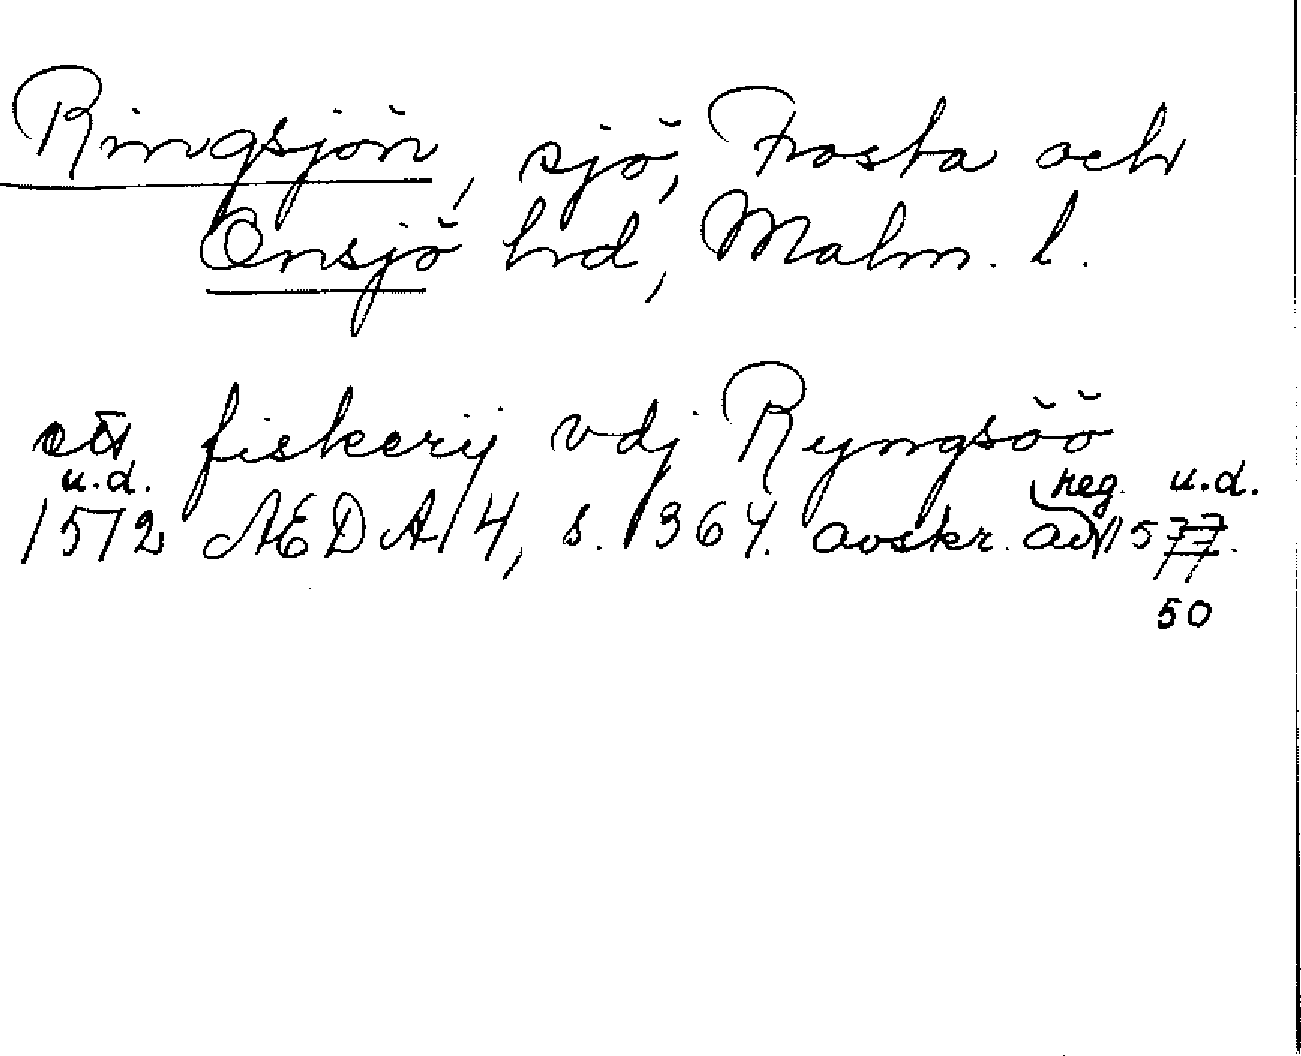 Ringsjön, sjö, Frosta och
Onsjö hrd, Malm. l.
fiskerij vdj Ryngsöö
u.d. reg. u.d.
1512 AEDA 4, s. 364. avskr. av 1577.
50